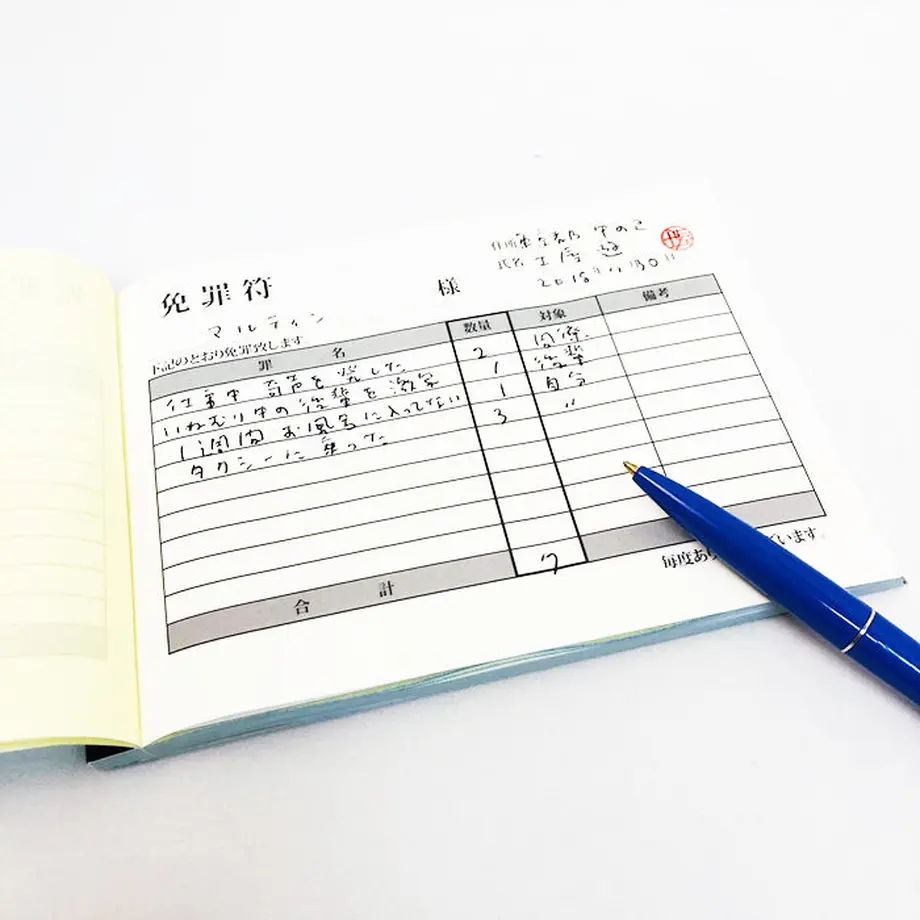 免罪符
マルティン 様
住所 東京都 中のこ
氏名 土屋 遊
2018年11月30日
下記のとおり免罪致します
罪 名 数量 対象 備考
仕事中 奇声を発した 2 同僚
いねむり中の後輩を激写 1 後輩
1週間 お風呂に入ってない 1 自分
タクシーに乗った 3 〃
合 計 7
毎度あり います。